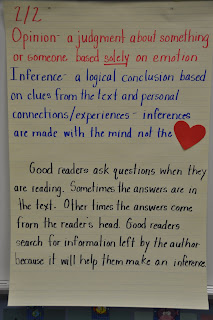 2/2
Opinion- a judgment about something
or someone based solely on emotion
Inference- a logical conclusion based
on clues from the text and personal
connections/experiences- inferences
are made with the mind not the
Good readers ask questions when they
are reading. Sometimes the answers are in
the text. Other times the answers come
from the reader's head. Good readers
search for information left by the author
because it will help them make an inference.